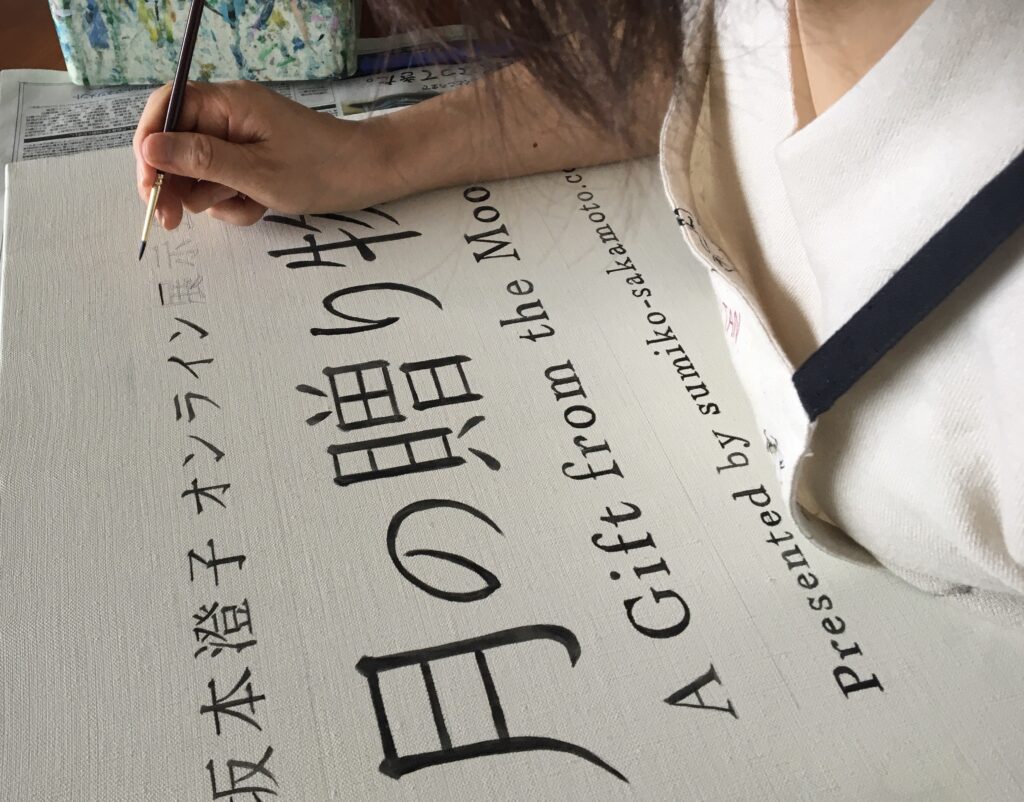 坂本澄子 オンライン展示
月の贈り物
A Gift from the Moo
Presented by sumiko-sakamoto.co
ってきた。